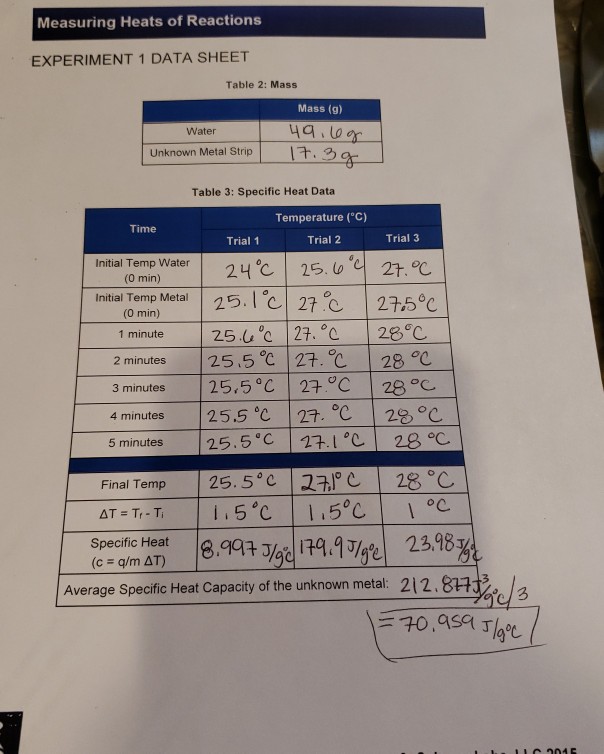 Measuring Heats of Reactions
EXPERIMENT 1 DATA SHEET
Table 2: Mass
Mass (g)
Water 49.6g
Unknown Metal Strip 17.3g
Table 3: Specific Heat Data
Time
Temperature (°C)
Trial 1 Trial 2 Trial 3
Initial Temp Water
(0 min)
24°C 25.6°C 27.°C
Initial Temp Metal
(0 min)
25.1°C 27.°C 27.5°C
1 minute 25.6°C 27.°C 28°C
2 minutes 25.5°C 27.°C 28°C
3 minutes 25.5°C 27°C 28°C
4 minutes 25.5°C 27.°C 28°C
5 minutes 25.5°C 27.1°C 28°C
Final Temp 25.5°C 27.1°C 28°C
ΔT = Tf - Ti 1.5°C 1.5°C 1°C
Specific Heat
(c = q/m ΔT)
8.997 J/g°C 179.9 J/g°C 23.98 J/g°C
Average Specific Heat Capacity of the unknown metal: 212.877 J/g°C/3
= 70.959 J/g°C
LLC 2015